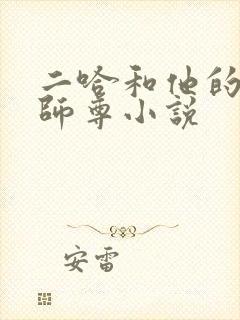 二哈和他的
師尊小説
安雷